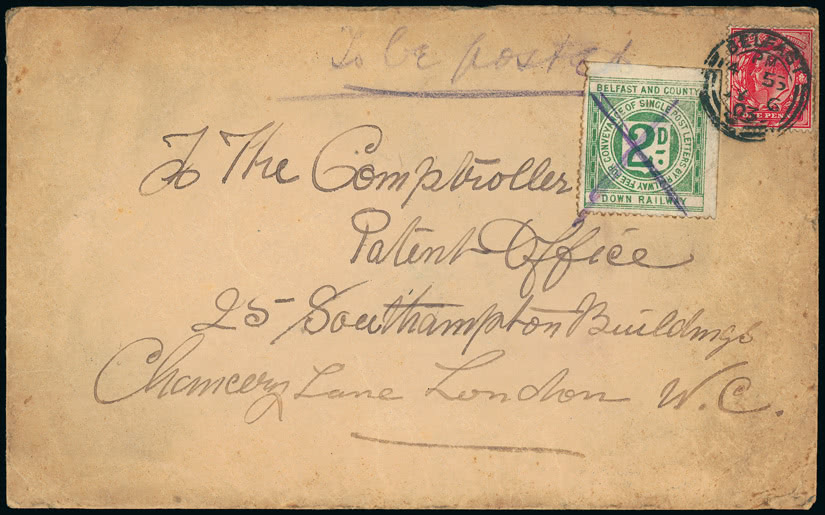 To be posted
BELFAST AND COUNTY
FEE FOR CONVEYANCE OF SINGLE POST LETTERS BY RAILWAY
2D
DOWN RAILWAY
BELFAST
PM
6
PENNY
To The Comptroller
Patent Office
25 Southampton Buildings
Chancery Lane London W.C.